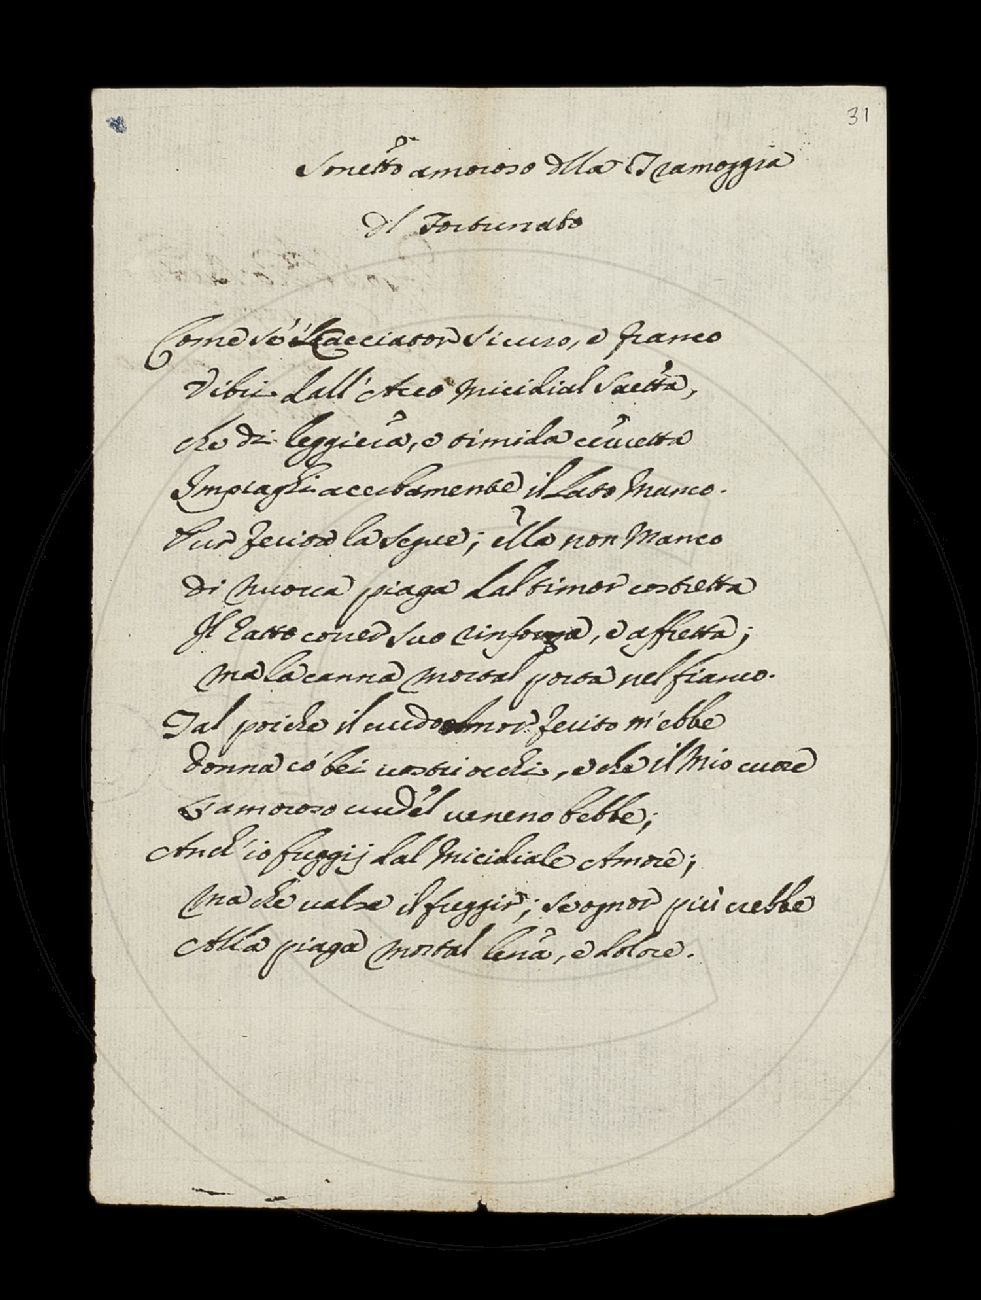 31
Sonetto amoroso della Tramoggia
del Fortunato
Come se Cacciator sicuro, e franco
Vibri dall'Arco micidial Saetta,
che di leggiera, e timida cervetta
Impiaghi acerbamente il Lato Manco.
Pur feritor la Segue; ella non Manco
di nuova piaga dal timor costretta
Il ratto corier suo rinforza, e affretta;
ma la canna mortal porta nel fianco.
Tal poiche il crudo Amor ferito m'ebbe
donna co' bei vostri occhi, e che il Mio cuore
L'amoroso crudel veneno bebbe;
Anch'io fuggij dal Micidiale Amore;
ma che valse il fuggir; se ognor più crebbe
Alla piaga mortal lena, e dolore.